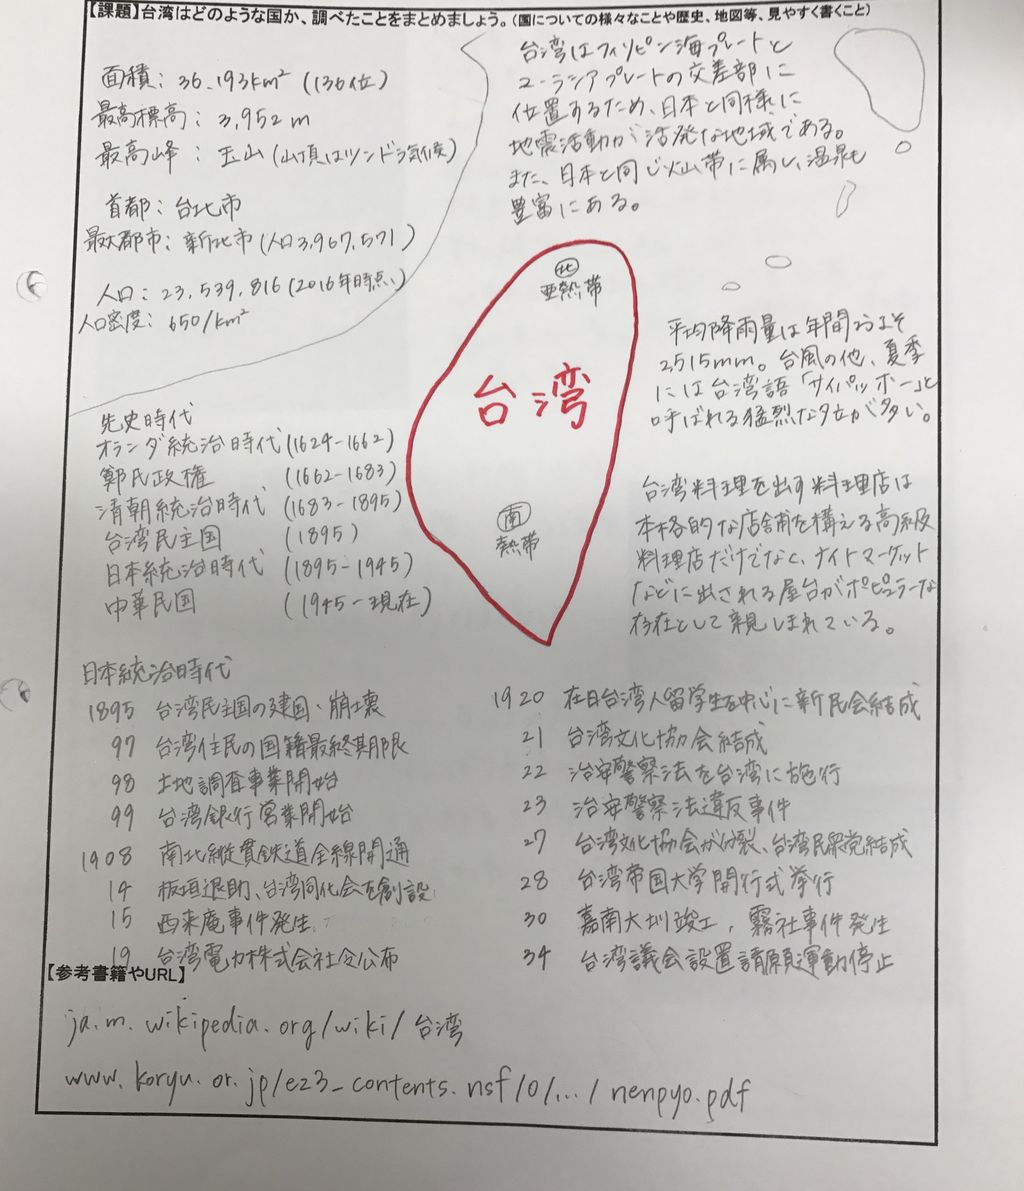 【課題】台湾はどのような国か、調べたことをまとめましょう。(国についての様々なことや歴史、地図等、見やすく書くこと)
面積：36.193km²（136位）
最高標高：3,952m
最高峰：玉山（山頂はツンドラ気候）
首都：台北市
最大都市：新北市（人口3,967,571）
人口：23,539,816（2016年時点）
人口密度：650/km²
台湾はフィリピン海プレートと
ユーラシアプレートの交差部に
位置するため、日本と同様に
地震活動が活発な地域である。
また、日本と同じ火山帯に属し、温泉も
豊富にある。
北
亜熱帯
台湾
南
熱帯
平均降雨量は年間およそ
2515mm。台風の他、夏季
には台湾語「サイパッホー」と
呼ばれる猛烈な夕立が多い。
台湾料理を出す料理店は
本格的な店舗を構える高級
料理店だけでなく、ナイトマーケット
などに出される屋台がポピュラーな
存在として親しまれている。
先史時代
オランダ統治時代（1624-1662）
鄭氏政権（1662-1683）
清朝統治時代（1683-1895）
台湾民主国（1895）
日本統治時代（1895-1945）
中華民国（1945-現在）
日本統治時代
1895 台湾民主国の建国、崩壊
97 台湾住民の国籍最終期限
98 土地調査事業開始
99 台湾銀行営業開始
1908 南北縦貫鉄道全線開通
14 板垣退助、台湾同化会を創設
15 西来庵事件発生
19 台湾電力株式会社令公布
1920 在日台湾人留学生を中心に新民会結成
21 台湾文化協会結成
22 治安警察法を台湾に施行
23 治安警察法違反事件
27 台湾文化協会が分裂、台湾民衆党結成
28 台湾帝国大学開行式挙行
30 嘉南大圳竣工，霧社事件発生
34 台湾議会設置請願運動停止
【参考書籍やURL】
ja.m.wikipedia.org/wiki/台湾
www.koryu.or.jp/ez3_contents.nsf/0/.../nenpyo.pdf